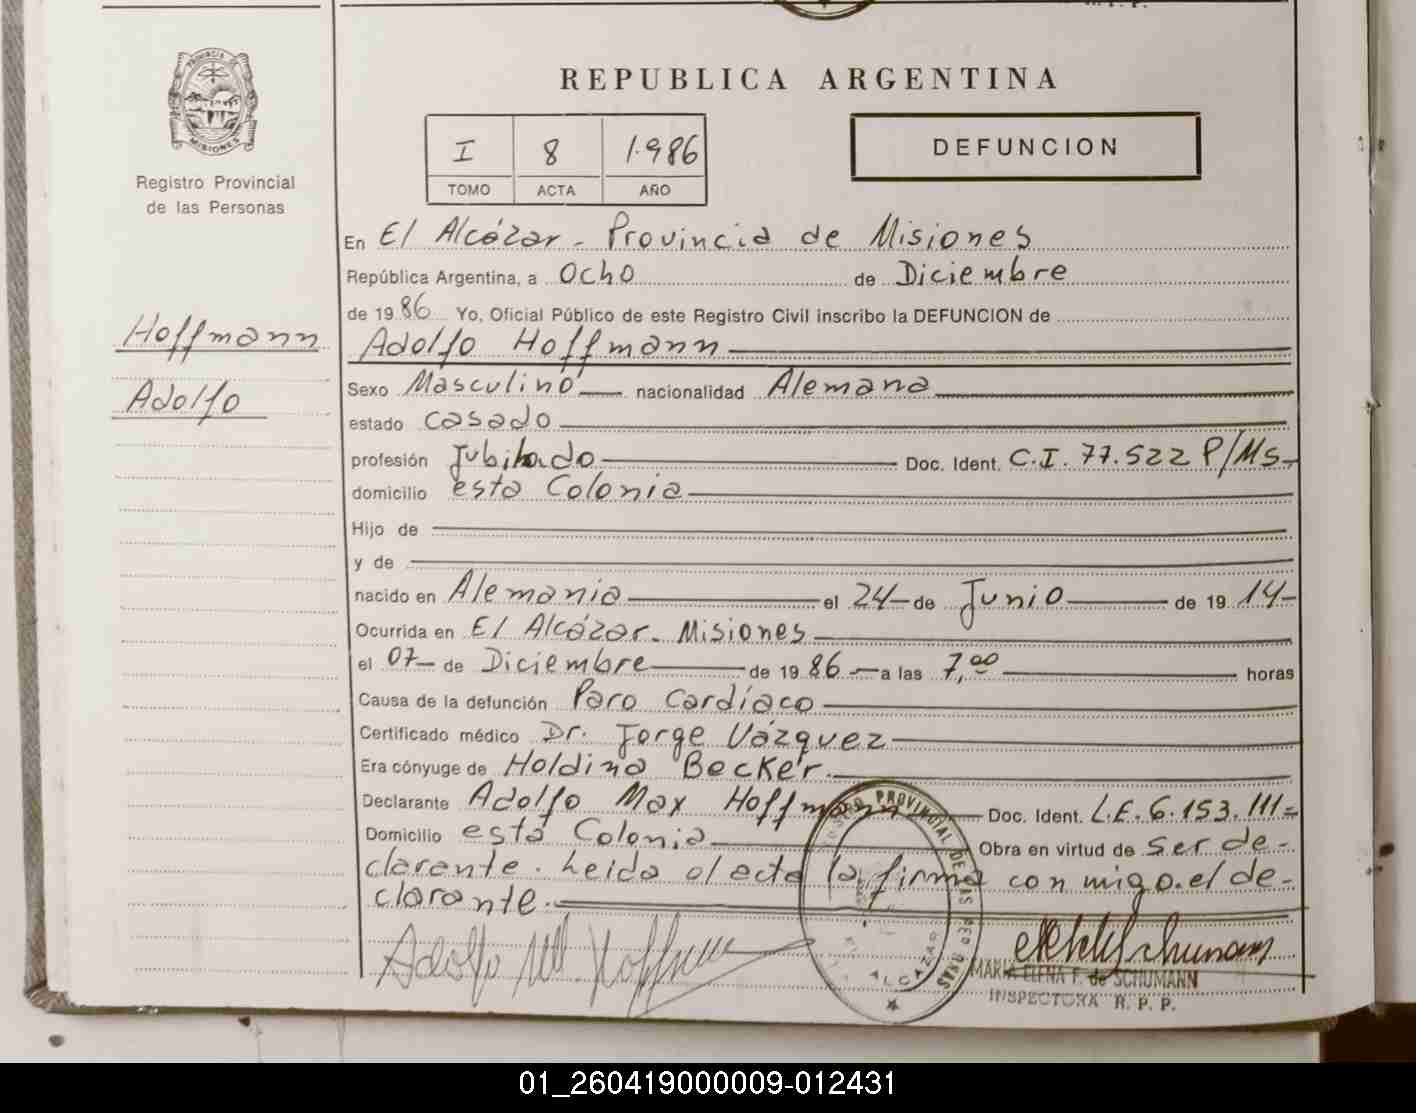 PROVINCIA DE
MISIONES
Registro Provincial
de las Personas
REPUBLICA ARGENTINA
I 8 1.986
TOMO ACTA AÑO
DEFUNCION
En El Alcázar - Provincia de Misiones
República Argentina, a Ocho de Diciembre
de 1986 Yo, Oficial Público de este Registro Civil inscribo la DEFUNCION de
Hoffmann
Adolfo Hoffmann
Sexo Masculino nacionalidad Alemana
Adolfo
estado casado
profesión Jubilado Doc. Ident. C.I. 77.522 P/Ms-
domicilio esta Colonia
Hijo de
y de
nacido en Alemania el 24- de Junio de 19 14-
Ocurrida en El Alcázar. Misiones
el 07- de Diciembre de 1986 - a las 7,00 horas
Causa de la defunción Paro Cardíaco
Certificado médico Dr. Jorge Vázquez
Era cónyuge de Holdina Becker.
Declarante Adolfo Max Hoffmann Doc. Ident. L.E. 6.153.111=
Domicilio esta Colonia Obra en virtud de ser de-
clarante. Leida el acta la firma con migo.el de-
clarante.
Adolfo M. Hoffmann
PROVINCIAL DE LAS PERSONAS
EL ALCAZAR
MARIA ELENA F. de SCHUMANN
INSPECTORA R. P. P.
01_260419000009-012431